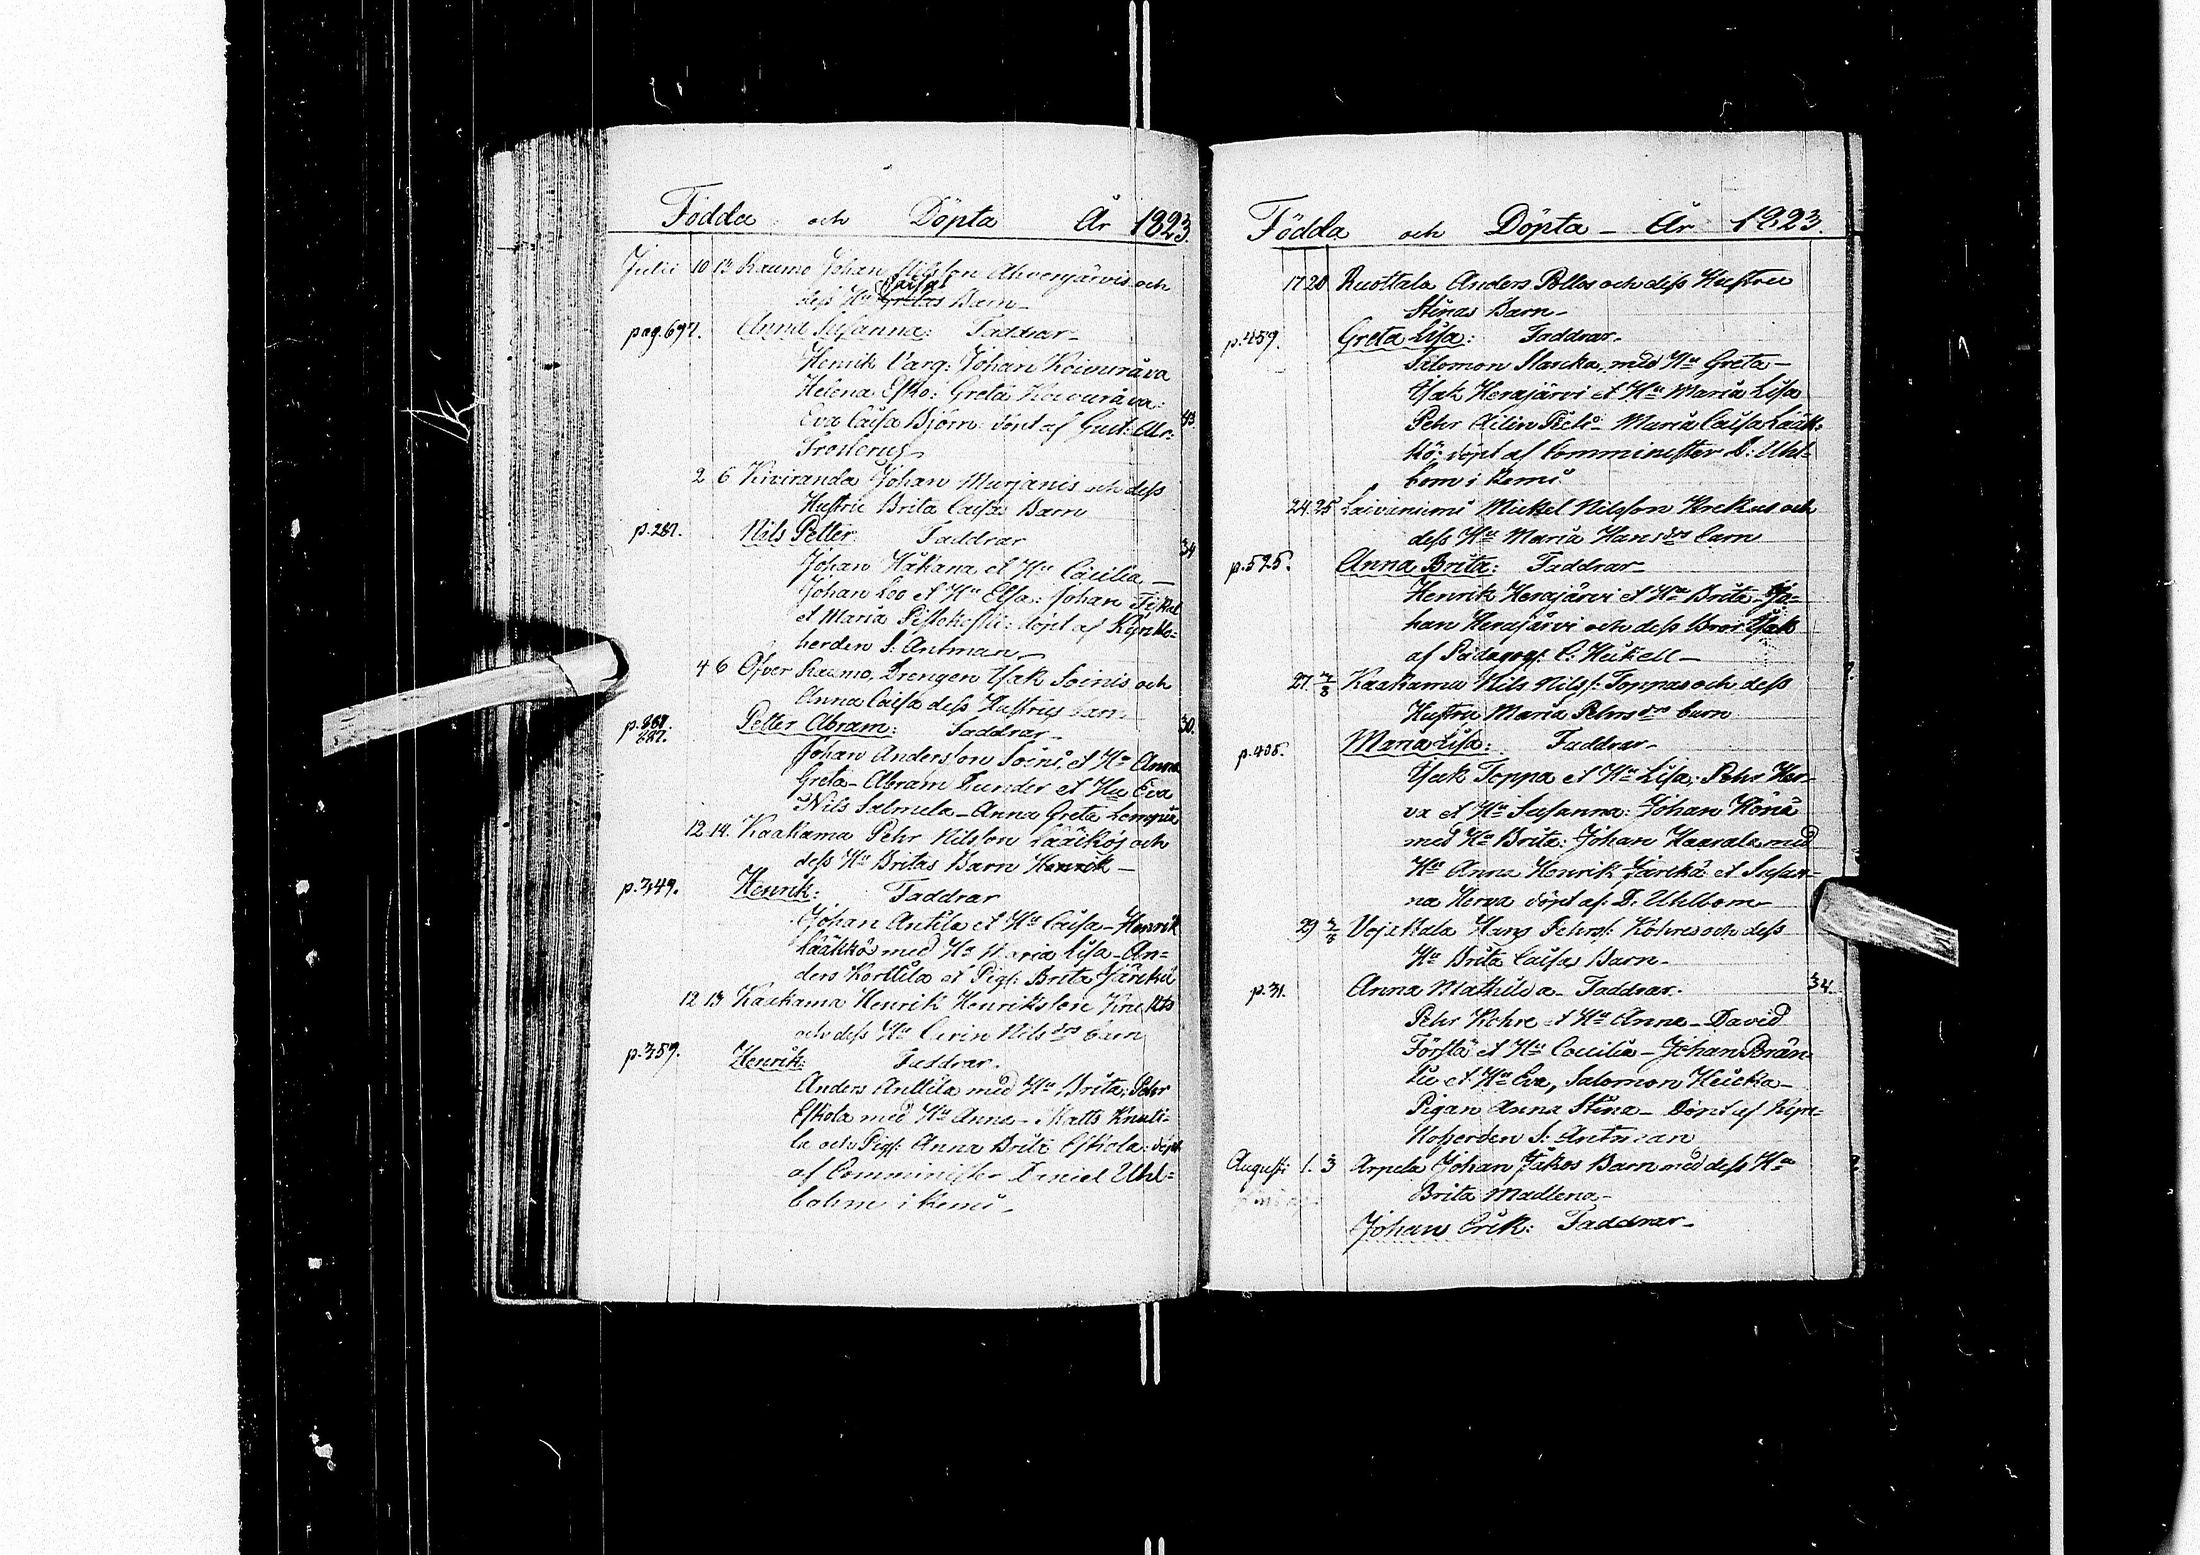 Födda och Döpta År 1823.
Julii 10 13 Raumo Johan Nilsson Ahvenjärvis och
dess Hu Caisas Gretas Barn
pag. 697. Anna Susanna: Faddrar
Henrik Varg: Johan Koivuråva
Helena Esko: Greta Koivuråva:
Eva Caisa Björn: döpt af Gust: Adr: 43
Frosterus
2 6 Kiviranda Johan Murjanis och dess
Hustru Brita Caisas Barn
p. 287. Nils Petter Faddrar 34
Johan Håkana et Hu Cäcilia
Johan Loo et Hu Elsa: Johan
et Maria döpt af Kyrko-
herden S: Antman
4 6 Ofver Raumo, Drengen Isak Soinis och
Anna Caisa dess Hustrus barn
p. 887. Petter Abram: Faddrar 30.
887.
Johan Andersson Soini, et Hu Anna
Greta - Abram Tunder et Hu Eva
Nils Salmela - Anna Greta
12 14. Kaakama Pehr Nilsson Läälkös och
dess Hu Britas Barn Henrik
p. 349. Henrik: Faddrar
Johan Antila et Hu Caisa - Henrik
Läälkkö med Hu Maria Lisa - An-
ders Korttila et Pig: Brita
12 13 Kaakama Henrik Henriksson
och dess Hu Carin Nils drs barn
p. 359. Henrik: Faddrar.
Anders Anttila med Hu Brita; Pehr
Eskola med Hu Anna - Matts Knuti-
la och Pig: Anna Brita Eskola: döpt
af Comminister Daniel Uhl-
bohm i Kemi
Födda och Döpta - År 1823.
17 20 Ruottala Anders Pollos och dess Hustru
Stinas Barn
p. 459. Greta Lisa: Faddrar
Salomon Marcka med Hu Greta
Isak Herajärvi et Hu Maria Lisa
Pehr Maria Caisa Lääk-
kö; döpt af Comminister D: Uhl-
bom i Kemi
24 25 Laivaniemi Mickel Nilsson Krekus och
dess Hu Maria Hans drs barn
p. 525. Anna Brita: Faddrar
Henrik Herajärvi et Hu Brita - Jo-
han Herajärvi och dess Bror Isak
af Pädagog: C: Heikell
27. 2/8 Kaakama Nils Nilss: Toppas och dess
Hustru Maria Pehrs drs barn
p. 405. Maria Lisa: Faddrar
Isak Toppa et Hu Lisa; Pehr Her-
va et Hu Susanna: Johan Könö
med Hu Brita: Johan Haarala med
Hu Anna Henrik et Susan-
na Herva döpt af: D. Uhlbom
29 2/8 Vojakala Hans Pehrs: Kohres och dess
Hu Brita Caisas Barn
p. 31. Anna Mathilda - Faddrar. 34.
Pehr Kohre et Hu Anna - David
Förstä et Hu Caecilia - Johan Brän-
et Hu Eva, Salomon
Pigan Anna Stina - Döpt af Kyr-
koherden S: Antman
Augusti 1. 3 Arpela Johan Jakos Barn med dess Hu
Brita Madlena
Johan Erik: Faddrar